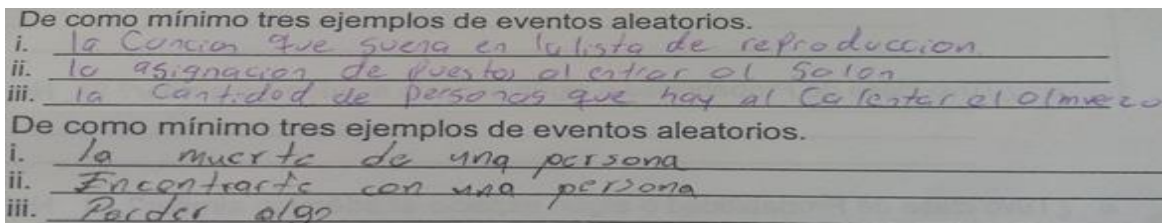 De como mínimo tres ejemplos de eventos aleatorios.
i. la Cancion que suena en la lista de reproduccion.
ii. la asignacion de puestos al entrar al salon
iii. la Cantidad de personas que hay al Calentar el almuerzo
De como mínimo tres ejemplos de eventos aleatorios.
i. la muerte de una persona
ii. Encontrarte con una persona
iii. Perder algo